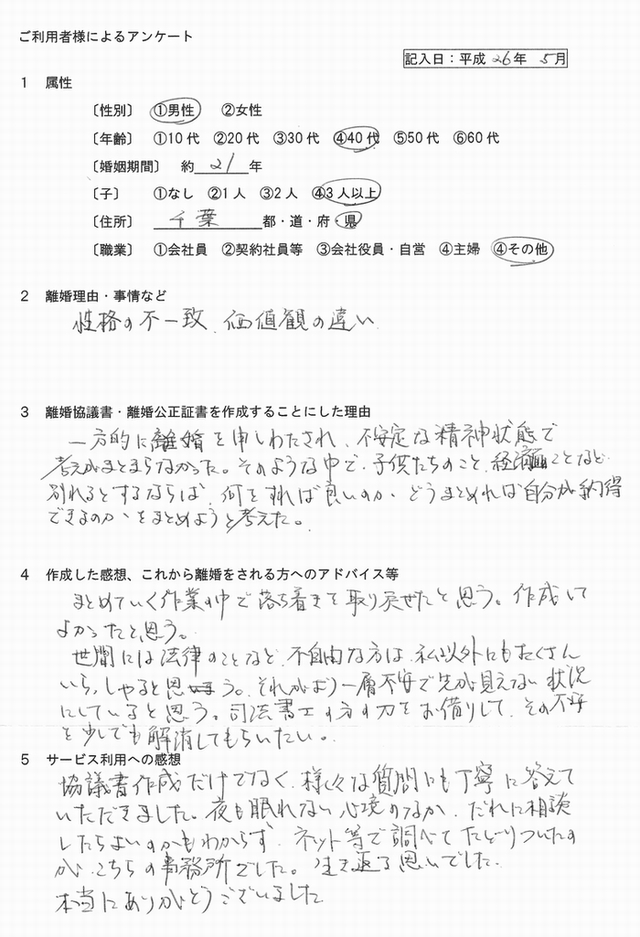 ご利用者様によるアンケート
記入日：平成 26年 5月
1 属性
〔性別〕 ①男性 ②女性
〔年齢〕 ①10代 ②20代 ③30代 ④40代 ⑤50代 ⑥60代
〔婚姻期間〕 約 21 年
〔子〕 ①なし ②1人 ③2人 ④3人以上
〔住所〕 千葉 都・道・府・県
〔職業〕 ①会社員 ②契約社員等 ③会社役員・自営 ④主婦 ④その他
2 離婚理由・事情など
性格の不一致、価値観の違い
3 離婚協議書・離婚公正証書を作成することにした理由
一方的に離婚を申しわたされ、不安定な精神状態で
考えがまとまらなかった。そのような中で、子供たちのこと、経済面のことなど
別れるとするならば、何をすれば良いのか、どうまとめれば自分が納得
できるのか、をまとめようと考えた。
4 作成した感想、これから離婚をされる方へのアドバイス等
まとめていく作業の中で落ち着きを取り戻せたと思う。作成して
よかったと思う。
世間には法律のことなど、不自由な方は、私以外にもたくさん
いらっしゃると思う。それがより一層不安で先が見えない状況
にしていると思う。司法書士の方の力をお借りして、その不安
を少しでも解消してもらいたい。
5 サービス利用への感想
協議書作成だけでなく、様々な質問にも丁寧に答えて
いただきました。夜も眠れない心境のなか、だれに相談
したらよいのかもわからず、ネット等で調べてたどりついたの
が、こちらの事務所でした。生き返る思いでした。
本当にありがとうございました